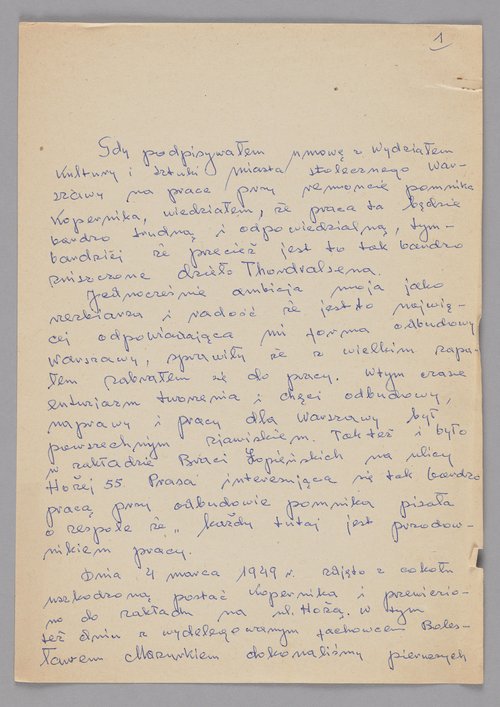 1
Gdy podpisywałem umowę z Wydziałem
Kultury i Sztuki miasta stołecznego War-
szawy na prace przy remoncie pomnika
Kopernika, wiedziałem, że praca ta będzie
bardzo trudną i odpowiedzialną, tym-
bardziej że przecież jest to tak bardzo
zniszczone dzieło Thordvalsena.
Jednocześnie ambicja moja jako
rzeźbiarza i radość że jest to najwię-
cej odpowiadająca mi forma odbudowy
Warszawy, sprawiły że z wielkim zapa-
łem zabrałem się do pracy. Wtym czasie
entuzjazm tworzenia i chęci odbudowy,
naprawy i pracy dla Warszawy był
powszechnym zjawiskiem. Tak też i było
w zakładzie Braci Łopieńskich na ulicy
Hożej 55 Prasa interesująca się tak bardzo
pracą przy odbudowie pomnika pisała
o zespole że „ każdy tutaj jest przodow-
nikiem pracy.
Dnia 4 marca 1949 r. zdjęto z cokołu
uszkodzoną postać Kopernika i przewiezio-
no do zakładu na ul. Hożą, w tym
też dniu z wydelegowanym fachowcem Boles-
ławem Mazurkiem dokonaliśmy pierwszych